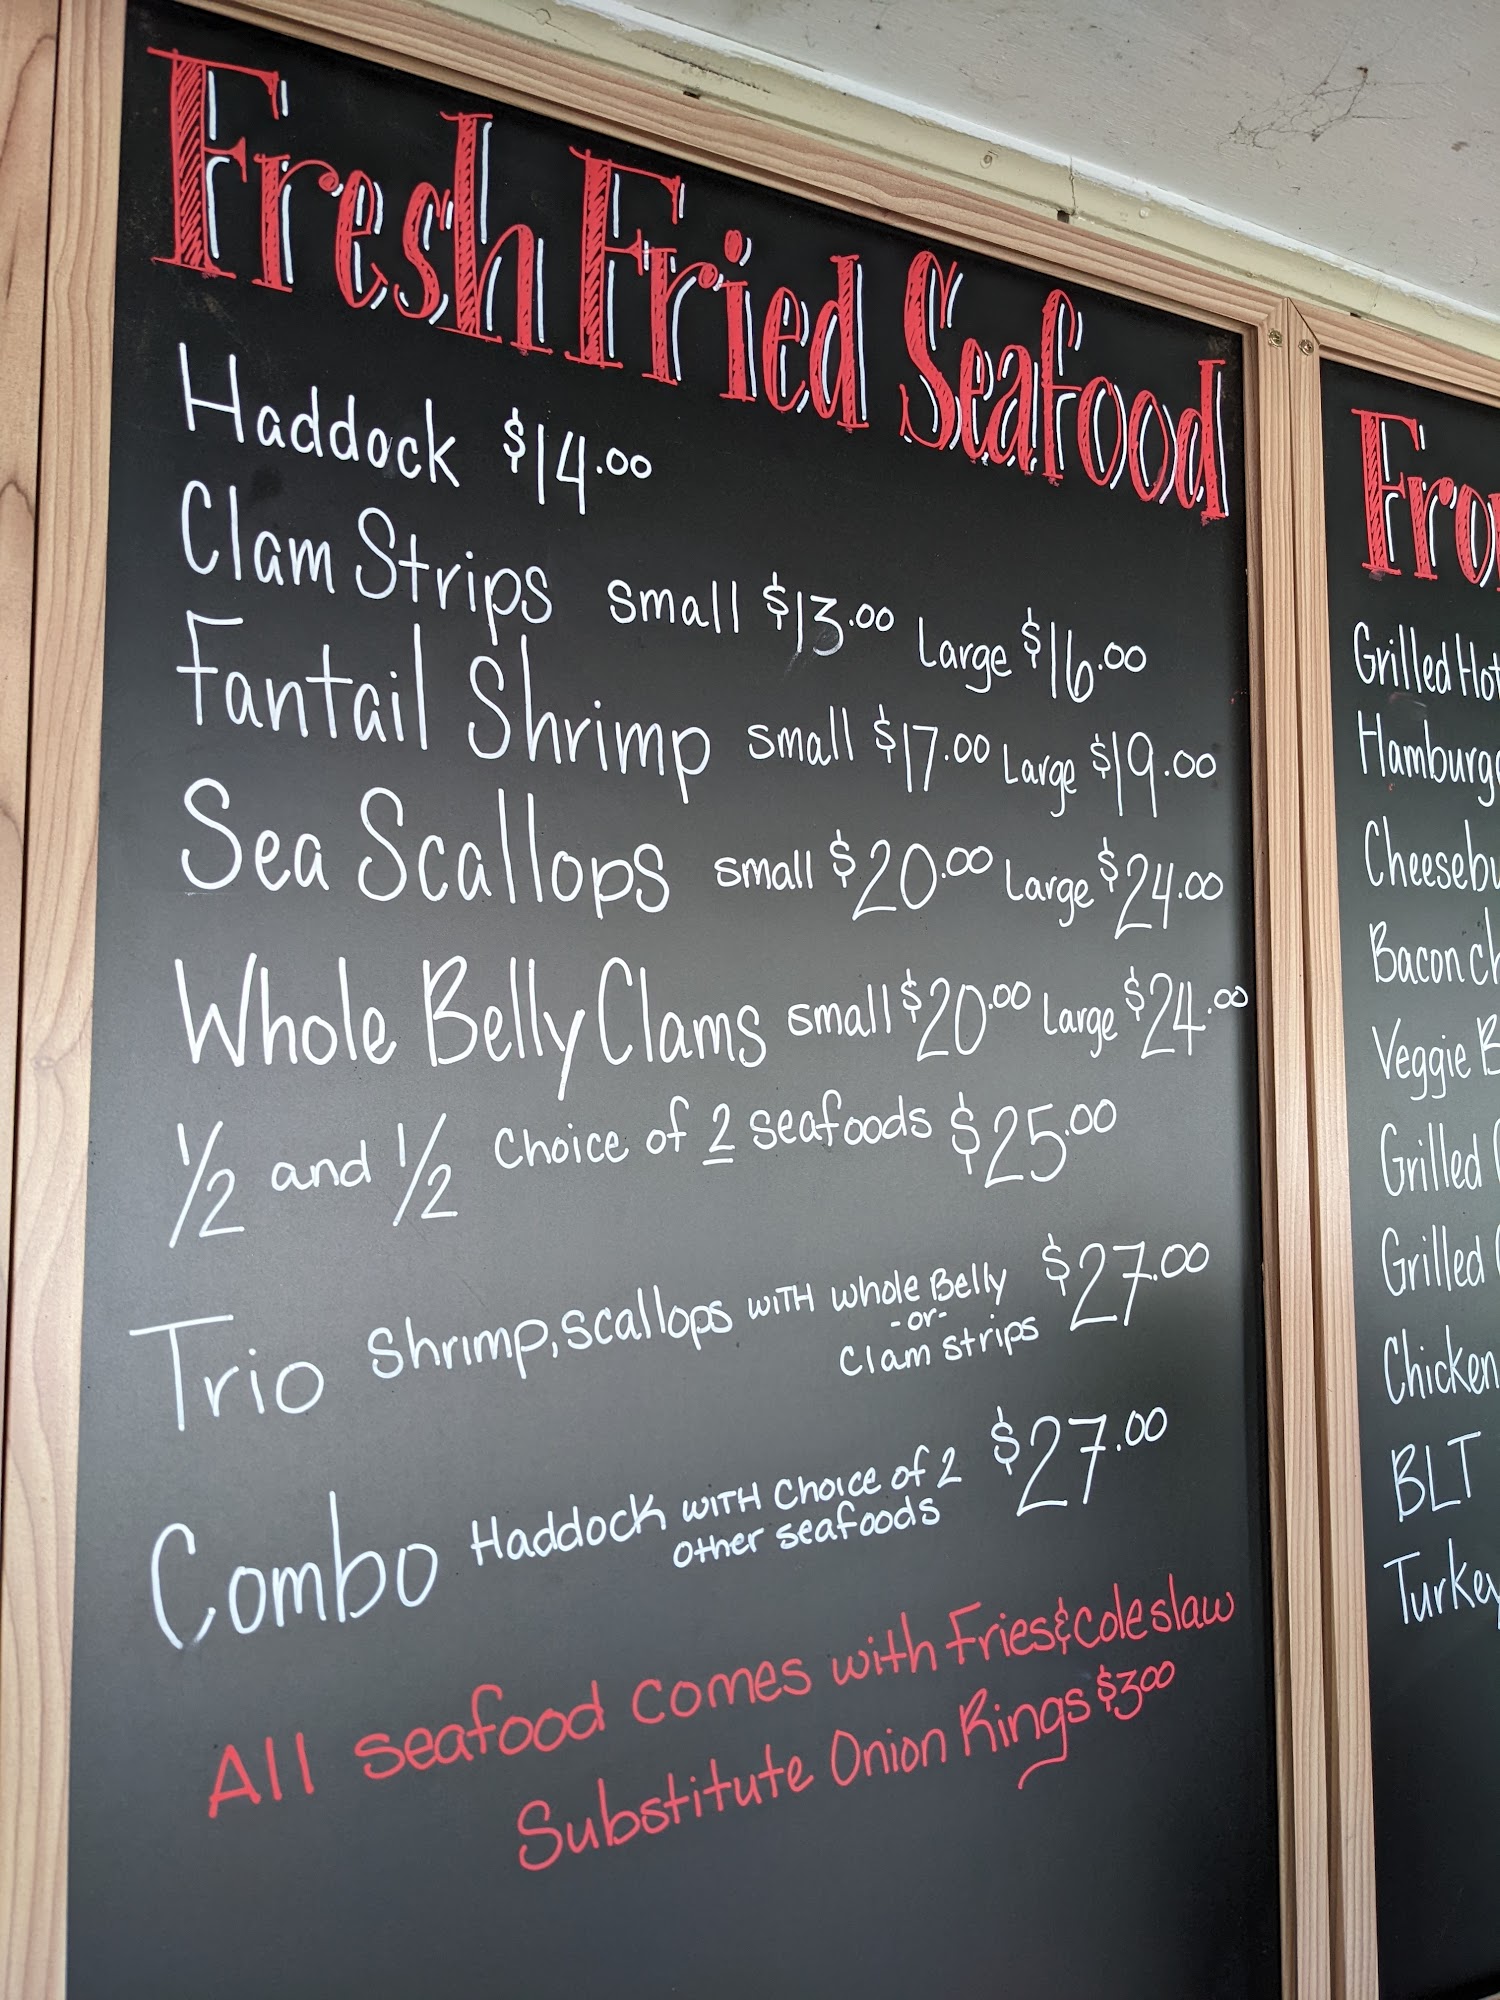 Fresh Fried Seafood
Haddock $14.00
Clam Strips small $13.00 Large $16.00
Fantail Shrimp small $17.00 Large $19.00
Sea Scallops small $20.00 Large $24.00
Whole Belly Clams small $20.00 Large $24.00
1/2 and 1/2 Choice of 2 seafoods $25.00
Trio Shrimp, scallops with whole Belly $27.00
-or-
Clam strips
Combo Haddock with Choice of 2 $27.00
other seafoods
All seafood comes with Fries & coleslaw
Substitute Onion Rings $3.00
Grilled
Cheesebu
Bacon
Veggie B
Grilled
Grilled
Chicken
BLT
Turkey